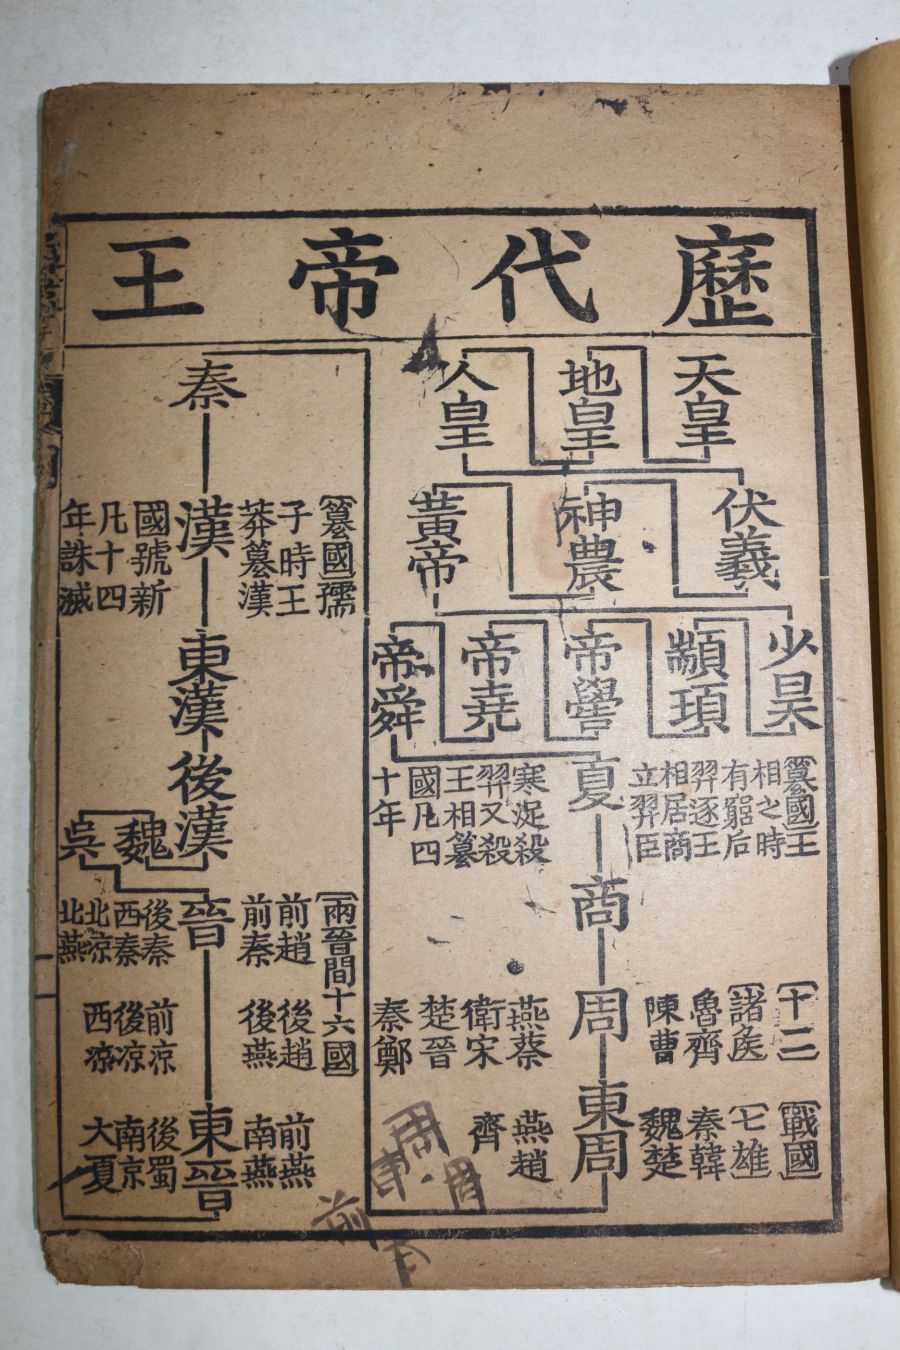 歷代帝王
天皇
地皇
人皇
伏羲
神農
黃帝
少昊
顓頊
帝嚳
帝堯
帝舜
夏
篡國王
相之時
有窮后
羿逐王
相居商
立羿臣
寒浞殺
羿又殺
王相篡
國凡四
十年
商
周
十二
諸侯
魯齊
陳曹
燕蔡
衛宋
楚晉
秦鄭
東周
戰國
七雄
秦韓
魏楚
燕趙
齊
秦
漢
篡國孺
子時王
莽篡漢
國號新
凡十四
年誅滅
東漢
後漢
魏
吳
晉
兩晉間十六國
前趙
後趙
前燕
前秦
後燕
南燕
後秦
前凉
後蜀
西秦
後凉
南京
北京
西凉
大夏
北燕
東晉